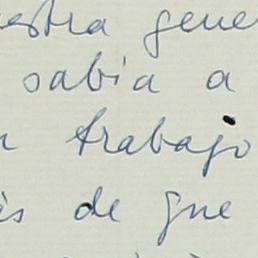 estra gene
sabia a
n trabajo
és de que